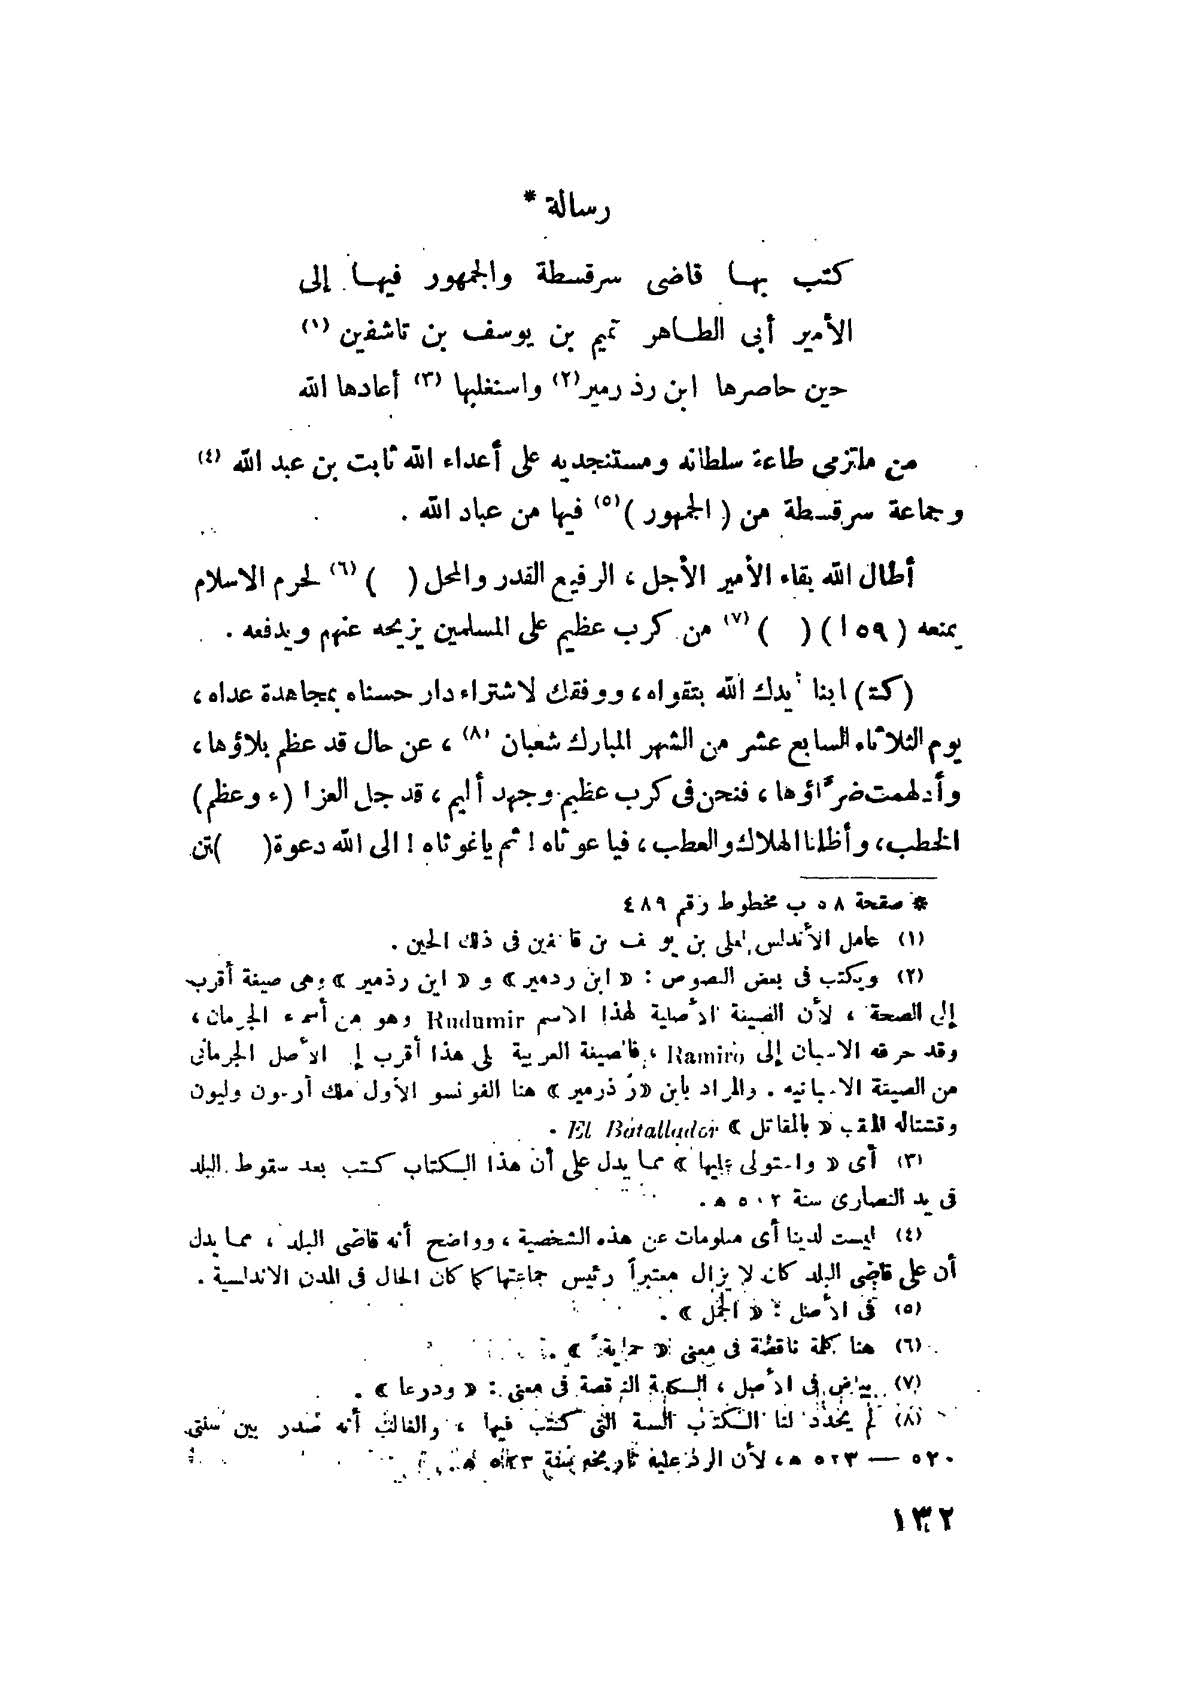 رسالة *
كتب بها قاضى سرقسطة والجمهور فيها إلى
الأمير أبى الطاهر تميم بن يوسف بن تاشفين (١)
حين حاصرها ابن رذ رمير (٢) واستغلبها (٣) أعادها الله
من ملتزمى طاعة سلطانه ومستنجديه على أعداء الله ثابت بن عبد الله (٤)
وجماعة سرقسطة من ( الجمهور ) (٥) فيها من عباد الله .
أطال الله بقاء الأمير الأجل ، الرفيع القدر والمحل ( ) (٦) لحرم الاسلام
يمنعه ( ٥٩ أ ) ( ) (٧) من كرب عظيم على المسلمين يزيحه عنهم ويدفعه .
(كتـ) ابنا أيدك الله بتقواه ، ووفقك لاشتراء دار حسناه بمجاهدة عداه ،
يوم الثلاثاء السابع عشر من الشهر المبارك شعبان (٨) ، عن حال قد عظم بلاؤها ،
وأدلهمت ضرّاؤها ، فنحن فى كرب عظيم وجهد أليم ، قد جل العزا (ء وعظم)
الخطب ، وأظلنا الهلاك والعطب ، فيا غوثاه ! ثم يا غوثاه ! الى الله دعوة ( ) تن
* صفحة ٥٨ ب مخطوط رقم ٤٨٩
(١) عامل الأندلس لعلى بن يوسف بن تاشفين فى ذلك الحين .
(٢) ويكتب فى بعض النصوص : « ابن ردمير » و « ابن رذمير » وهى صيغة أقرب
إلى الصحة ، لأن الصيغة الأصلية لهذا الاسم Rudumir وهو من أسماء الجرمان ،
وقد حرفه الاسبان إلى Ramiro ، فالصيغة العربية لى هذا أقرب إلى الأصل الجرمانى
من الصيغة الاسبانيه . والمراد بابن «رذ ذرمير » هنا الفونسو الأول ملك أرغون وليون
وقشتاله الملقب « بالمقاتل » El Batallador .
(٣) أى « واستولى عليها » مما يدل على أن هذا الكتاب كتب بعد سقوط البلد
فى يد النصارى سنة ٥٠٢ ه .
(٤) ليست لدينا أى معلومات عن هذه الشخصية ، وواضح أنه قاضى البلد ، مما يدل
أن على قاضى البلد كان لا يزال معتبراً رئيس جماعتها كما كان الحال فى المدن الاندلسية .
(٥) فى الأصل : « الجمل » .
(٦) هنا كلمة ناقصة فى معنى « حماية » .
(٧) بياض فى الأصل ، الكلمة الناقصة فى معنى : « ودرعا » .
(٨) لم يحدد لنا الكتاب السنة التى كتب فيها ، والغالب أنه صدر بين سنتى
٥٢٠ — ٥٢٣ ه ، لأن الرد عليه تاريخه سنة ٥٢٣ ه .
١٣٢